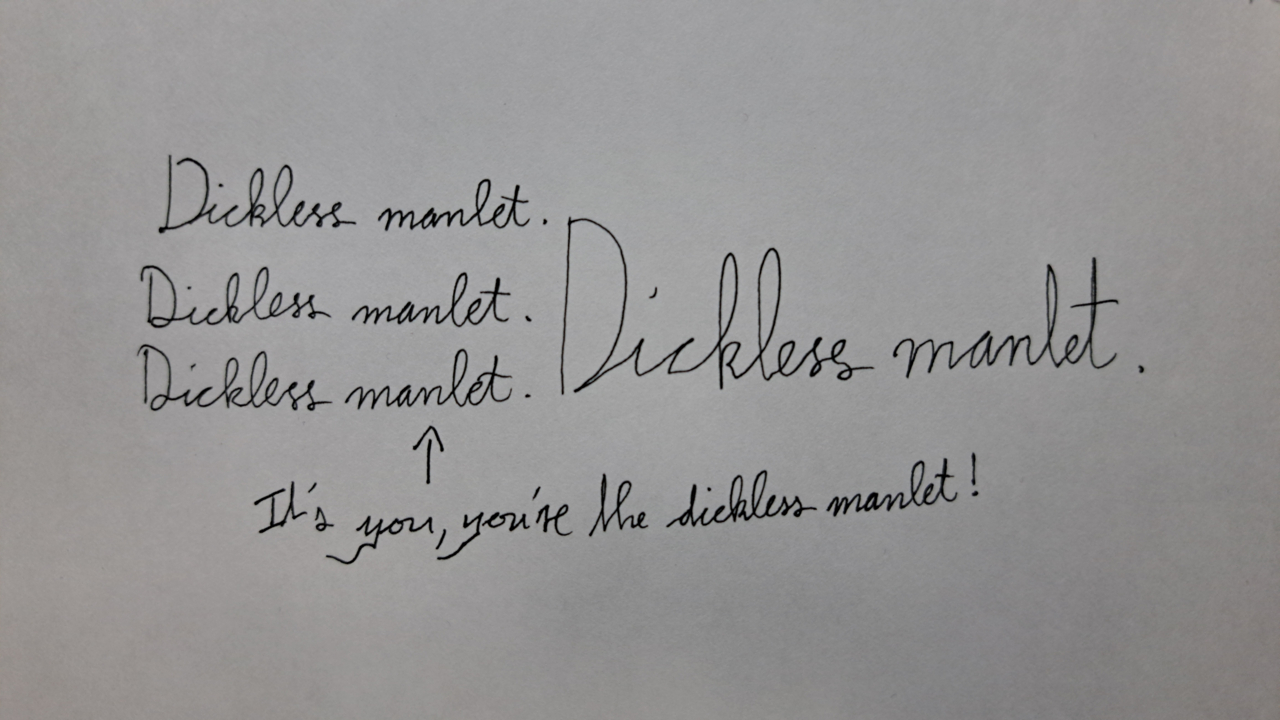 Dickless manlet.
Dickless manlet.
Dickless manlet.
Dickless manlet.
It's you, you're the dickless manlet!